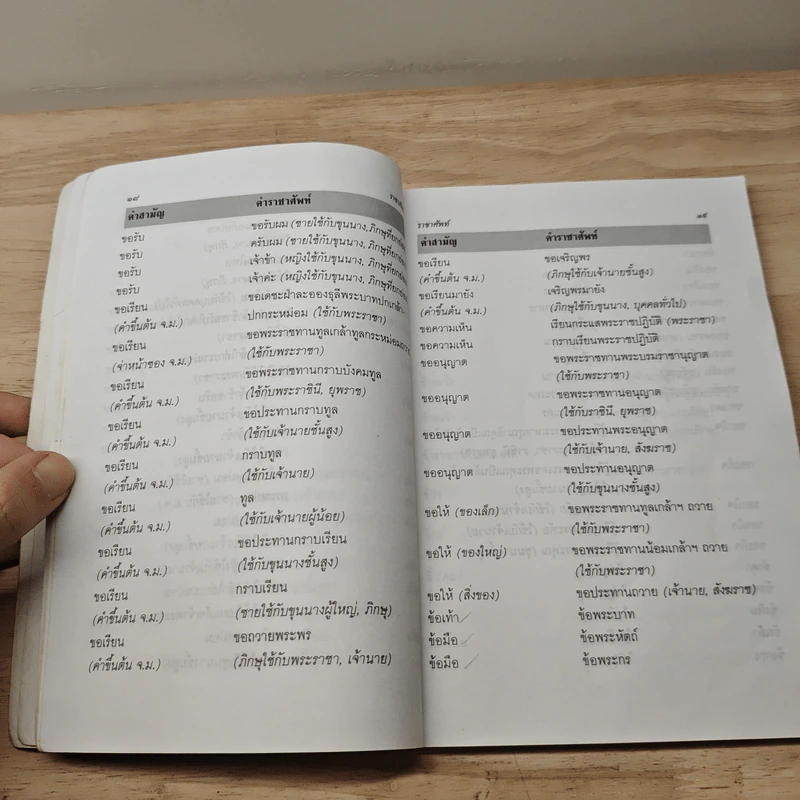 ๑๘
คำสามัญ คำราชาศัพท์
ขอรับ ขอรับผม (ชายใช้กับขุนนาง, ภิกษุที่ยกย่อง
ขอรับ ครับผม (ชายใช้กับขุนนาง, ภิกษุที่ยกย่อง
ขอรับ เจ้าข้า (หญิงใช้กับขุนนาง, ภิกษุที่ยกย่อง
ขอรับ เจ้าค่ะ (หญิงใช้กับขุนนาง, ภิกษุที่ยกย่อง
ขอเรียน ขอเดชะฝ่าละอองธุลีพระบาทปกเกล้า
(คำขึ้นต้น จ.ม.) ปกกระหม่อม (ใช้กับพระราชา)
ขอเรียน ขอพระราชทานทูลเกล้าทูลกระหม่อมถวาย
(จ่าหน้าซอง จ.ม.) (ใช้กับพระราชา)
ขอเรียน ขอพระราชทานกราบบังคมทูล
(คำขึ้นต้น จ.ม.) (ใช้กับพระราชินี, ยุพราช)
ขอเรียน ขอประทานกราบทูล
(คำขึ้นต้น จ.ม.) (ใช้กับเจ้านายชั้นสูง)
ขอเรียน กราบทูล
(คำขึ้นต้น จ.ม.) (ใช้กับเจ้านาย)
ขอเรียน ทูล
(คำขึ้นต้น จ.ม.) (ใช้กับเจ้านายผู้น้อย)
ขอเรียน ขอประทานกราบเรียน
(คำขึ้นต้น จ.ม.) (ใช้กับขุนนางชั้นสูง)
ขอเรียน กราบเรียน
(คำขึ้นต้น จ.ม.) (ชายใช้กับขุนนางผู้ใหญ่, ภิกษุ)
ขอเรียน ขอถวายพระพร
(คำขึ้นต้น จ.ม.) (ภิกษุใช้กับพระราชา, เจ้านาย)
ราชาศัพท์ ๑๙
คำสามัญ คำราชาศัพท์
ขอเรียน ขอเจริญพร
(คำขึ้นต้น จ.ม.) (ภิกษุใช้กับเจ้านายชั้นสูง)
ขอเรียนมายัง เจริญพรมายัง
(คำขึ้นต้น จ.ม.) (ภิกษุใช้กับขุนนาง, บุคคลทั่วไป)
ขอความเห็น เรียนกระแสพระราชปฏิบัติ (พระราชา)
ขอความเห็น กราบเรียนพระราชปฏิบัติ
ขออนุญาต ขอพระราชทานพระบรมราชานุญาต
(ใช้กับพระราชา)
ขออนุญาต ขอพระราชทานอนุญาต
(ใช้กับราชินี, ยุพราช)
ขออนุญาต ขอประทานพระอนุญาต
(ใช้กับเจ้านาย, สังฆราช)
ขออนุญาต ขอประทานอนุญาต
(ใช้กับขุนนางชั้นสูง)
ขอให้ (ของเล็ก) ขอพระราชทานทูลเกล้าฯ ถวาย
(ใช้กับพระราชา)
ขอให้ (ของใหญ่) ขอพระราชทานน้อมเกล้าฯ ถวาย
(ใช้กับพระราชา)
ขอให้ (สิ่งของ) ขอประทานถวาย (เจ้านาย, สังฆราช)
ข้อเท้า ข้อพระบาท
ข้อมือ ข้อพระหัตถ์
ข้อมือ ข้อพระกร